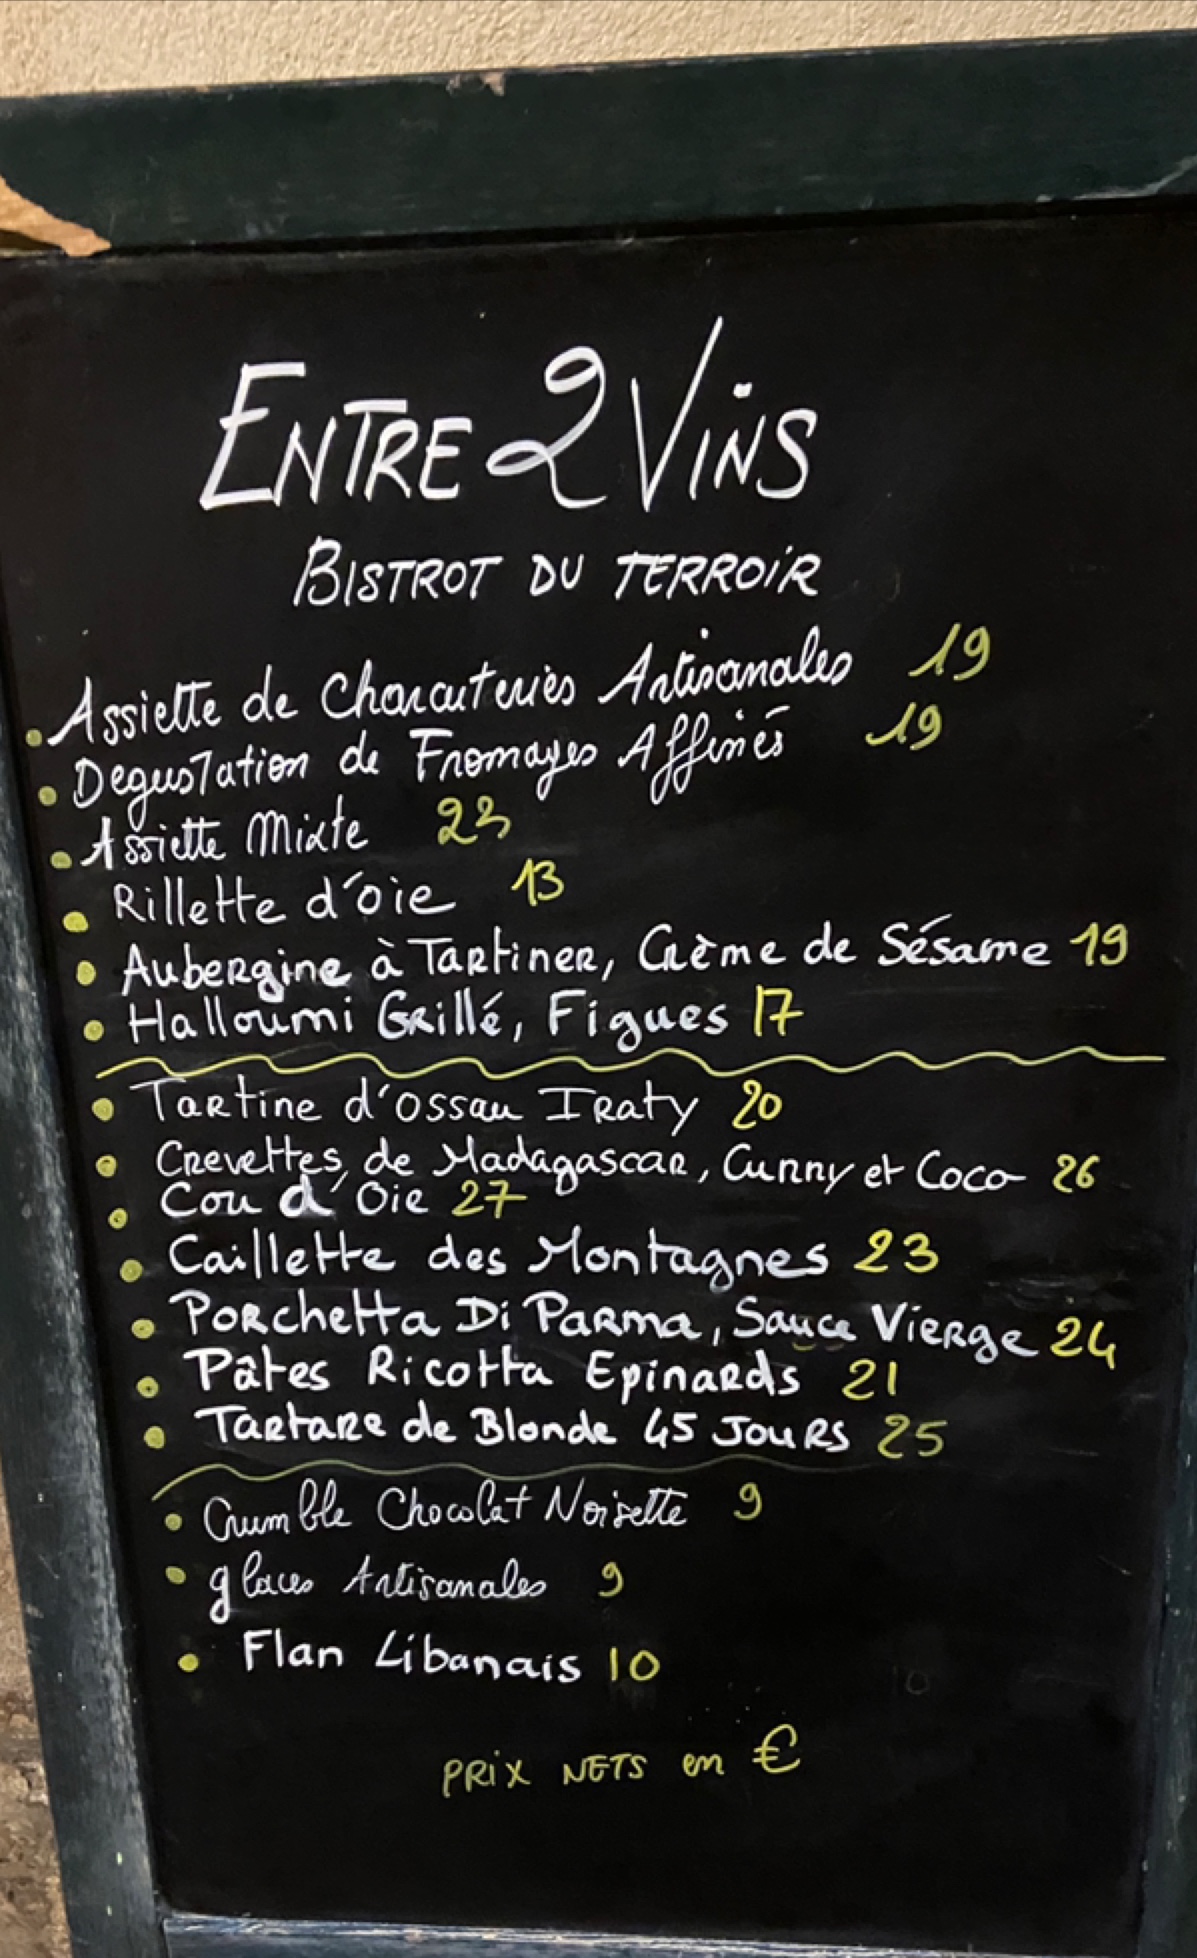 ENTRE 2 VINS
BISTROT DU TERROIR
Assiette de Charcuteries Artisanales 19
Degustation de Fromages Affinés 19
Assiette Mixte 23
Rillette d'oie 13
Aubergine à Tartiner, Crème de Sésame 19
Halloumi Grillé, Figues 17
Tartine d'Ossau Iraty 20
Crevettes de Madagascar, Curry et Coco 26
Cou d'Oie 27
Caillette des Montagnes 23
Porchetta Di Parma, Sauce Vierge 24
Pâtes Ricotta Epinards 21
Tartare de Blonde 45 Jours 25
Crumble Chocolat Noisette 9
glaces Artisanales 9
Flan Libanais 10
PRIX NETS en €